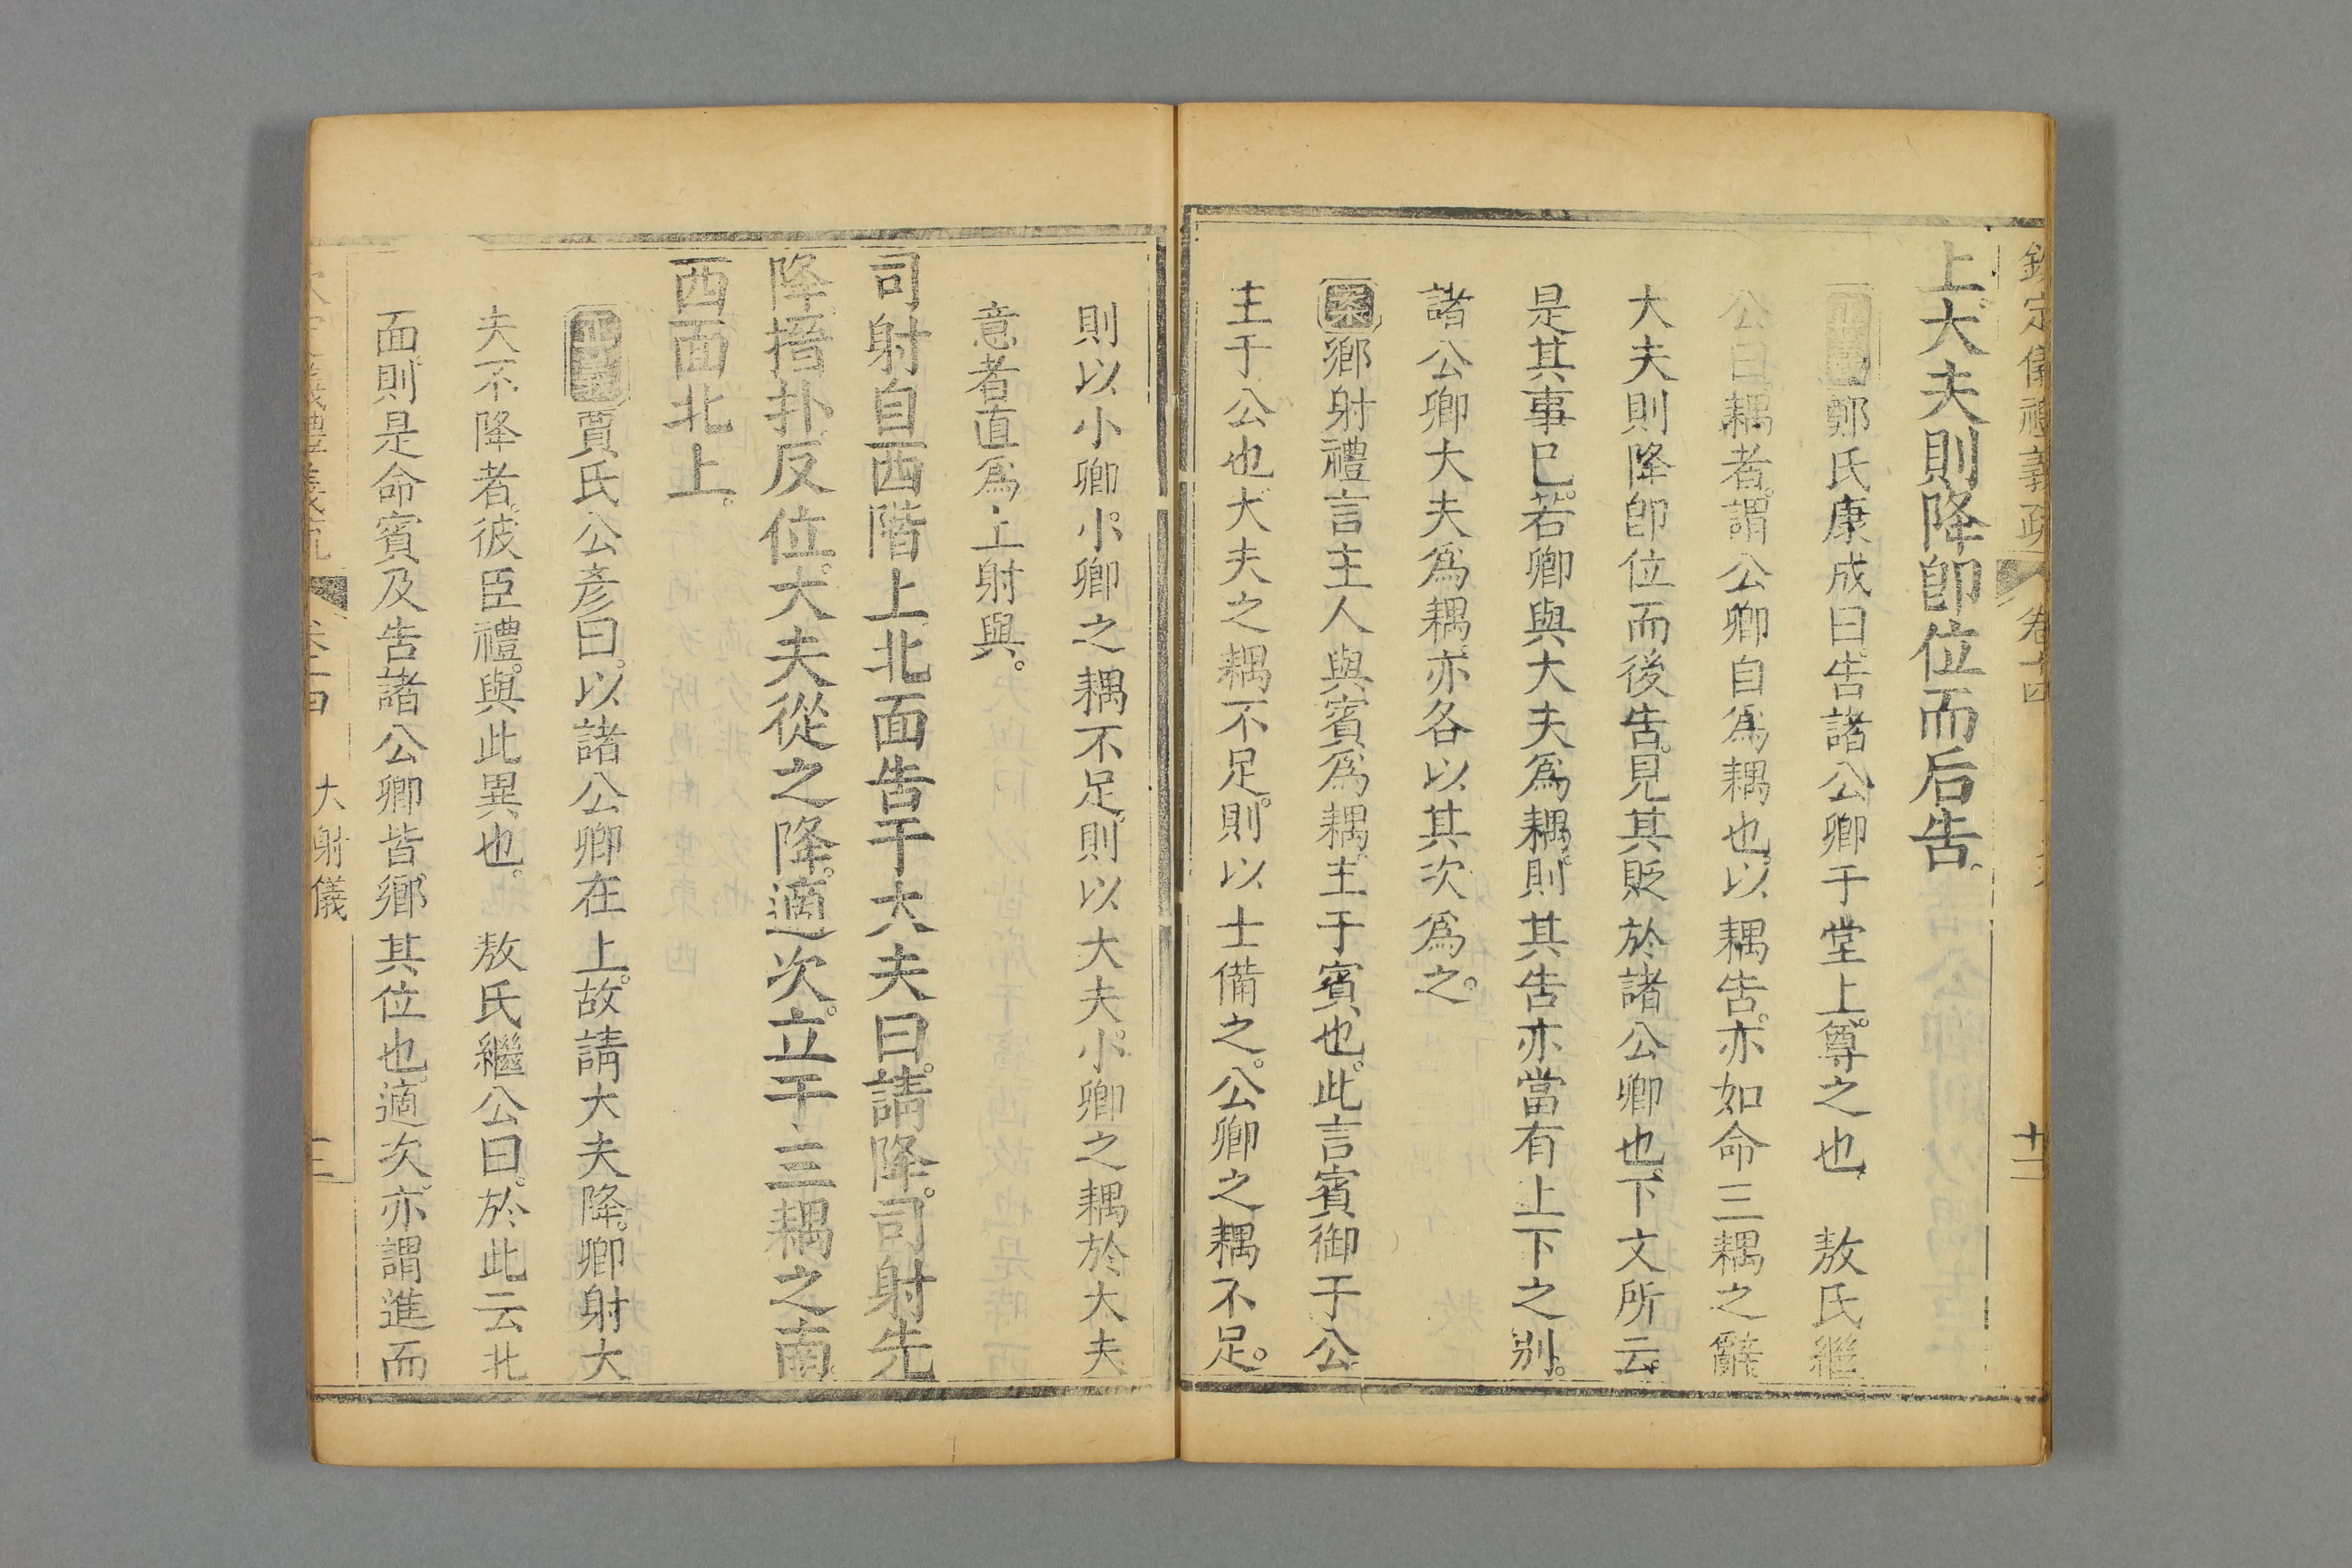 欽定儀禮義疏 卷十四 十二
上大夫則降卽位而后告
正義鄭氏康成曰告諸公卿于堂上尊之也 敖氏繼
公曰耦者謂公卿自爲耦也以耦告亦如命三耦之辭
大夫則降卽位而後告見其貶於諸公卿也下文所云
是其事已若卿與大夫爲耦則其告亦當有上下之别
諸公卿大夫爲耦亦各以其次爲之
案鄉射禮言主人與賓爲耦主于賓也此言賓御于公
主于公也大夫之耦不足則以士備之公卿之耦不足
則以小卿小卿之耦不足則以大夫小卿之耦於大夫
意者直爲上射與
司射自西階上北面告于大夫曰請降司射先
降搢扑反位大夫從之降適次立于三耦之南
西面北上
正義賈氏公彥曰以諸公卿在上故請大夫降卿射大
夫不降者彼臣禮與此異也 敖氏繼公曰於此云北
面則是命賓及告諸公卿皆鄉其位也適次亦謂進而
儀禮義疏 卷十四 大射儀